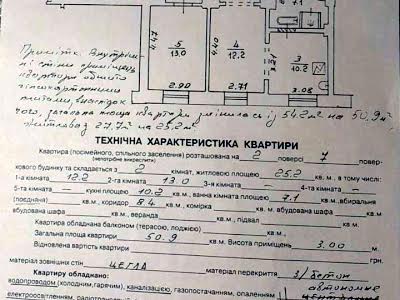 7.1
4.47
5
13.0
4.40
4
12.2
3.21
3
10.2
2.90
2.71
3.08
Примітк. Внутрішні
стіни приміщень
квартири обшито
гіпсокартонними
плитами, внаслідок
чого, загальна площа квартири змінилась із 54.2 м² на 50.9 м²
житлова з 27.7 м² на 25.2 м².
ТЕХНІЧНА ХАРАКТЕРИСТИКА КВАРТИРИ
Квартира (посімейного, спільного заселення) розташована на 2 поверсі 7 повер-
(непотрібне викреслити)
хового будинку та складається з 2 кімнат, житловою площею 25.2 кв.м, в тому числі:
1-а кімната 12.2 кв.м, 2-га кімната 13.0 кв.м, 3-я кімната — кв.м, 4-та кімната —
5-та кімната — кв.м, кухні площею 10.2 кв.м, ванна кімната 7.1 кв.м, вбиральня
(поєднана) кв.м, коридор 8.4 кв.м, комірка кв.м, вбудована шафа кв.м
вбудована шафа кв.м, веранда кв.м, підвал кв.м
Квартира обладнана балконом (терасою, лоджією) кв.м.
Загальна площа квартири 50.9 кв.м. Висота приміщень 3.00 м.
Відновлена вартість квартири грн.
матеріал зовнішніх стін ЦЕГЛА матеріал перекриття З/бетон
Квартиру обладнано: автономне
водопроводом (холодним, гарячим), каналізацією, газопостачанням, опаленням центральним